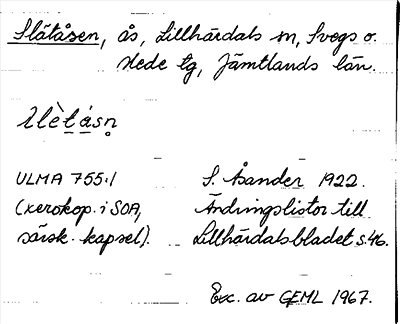 Slätåsen, ås, Lillhärdals sn, Svegs o.
Hede tg, Jämtlands län.
Slètásn̥
ULMA 755:1 S. Åsander 1922.
(xerokop. i SOA, Ändringslistor till
särsk. kapsel). Lillhärdalsbladet s.46.
Exc. av GEML 1967.